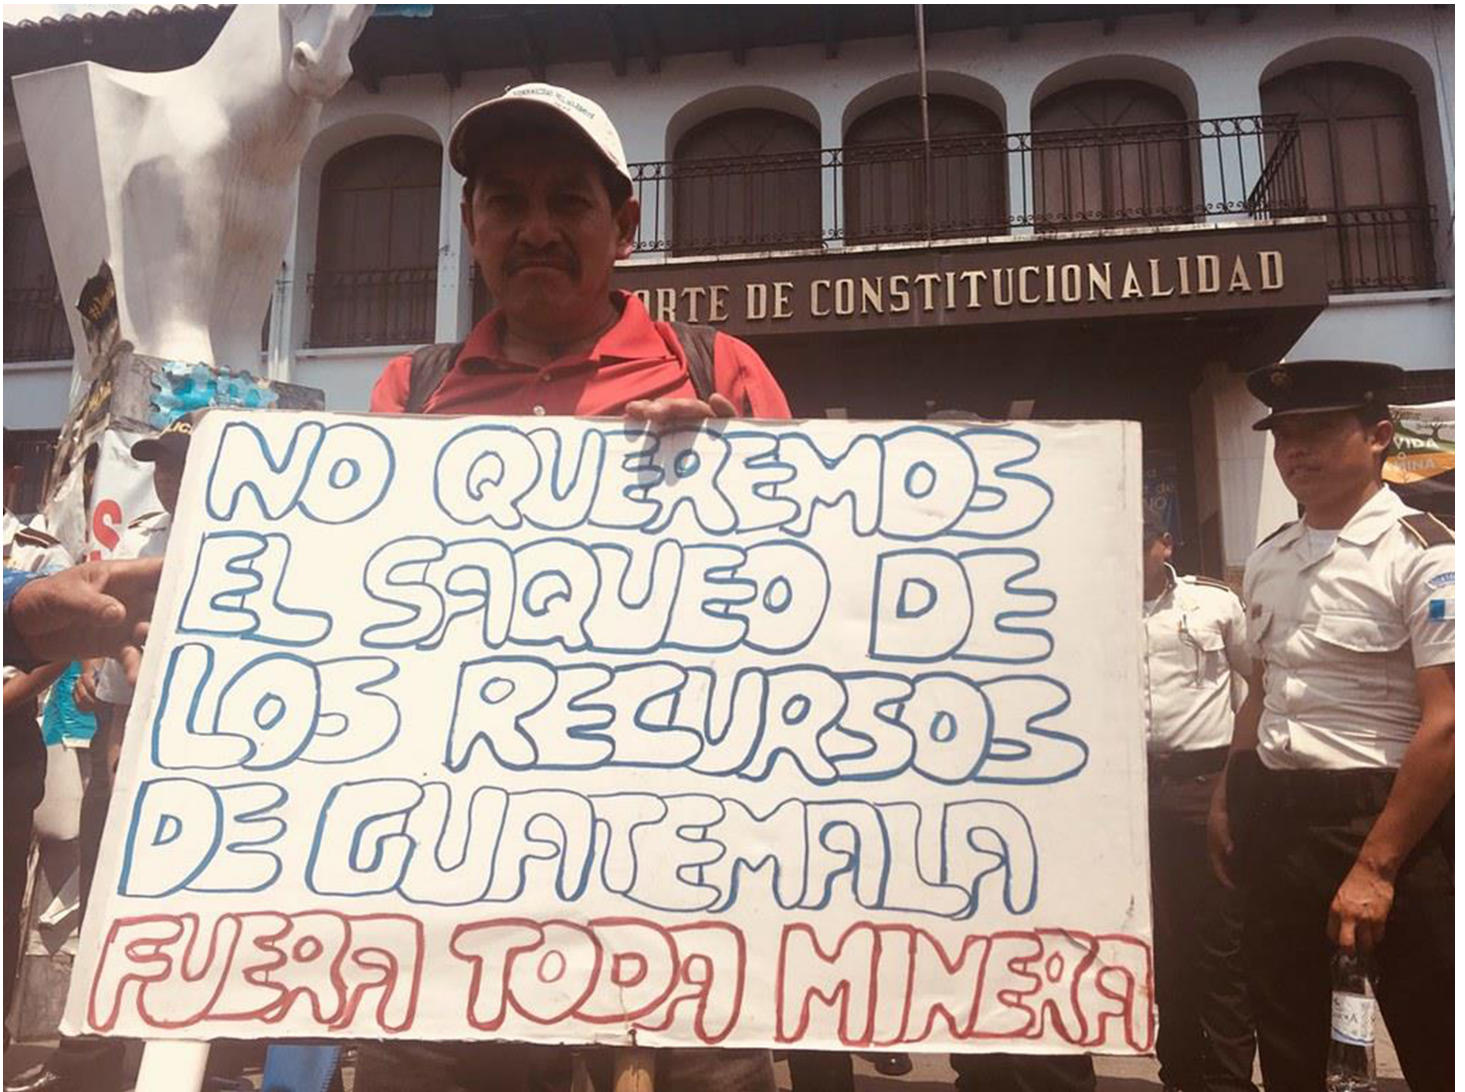 ORTE DE CONSTITUCIONALIDAD
NO QUEREMOS
EL SAQUEO DE
LOS RECURSOS
DE GUATEMALA
FUERA TODA MINERA
VIDA
MINA